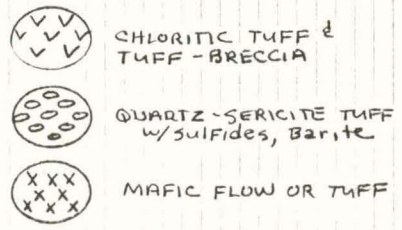 CHLORITIC TUFF &
TUFF - BRECCIA
QUARTZ - SERICITE TUFF
w/ Sulfides, Barite
MAFIC FLOW OR TUFF